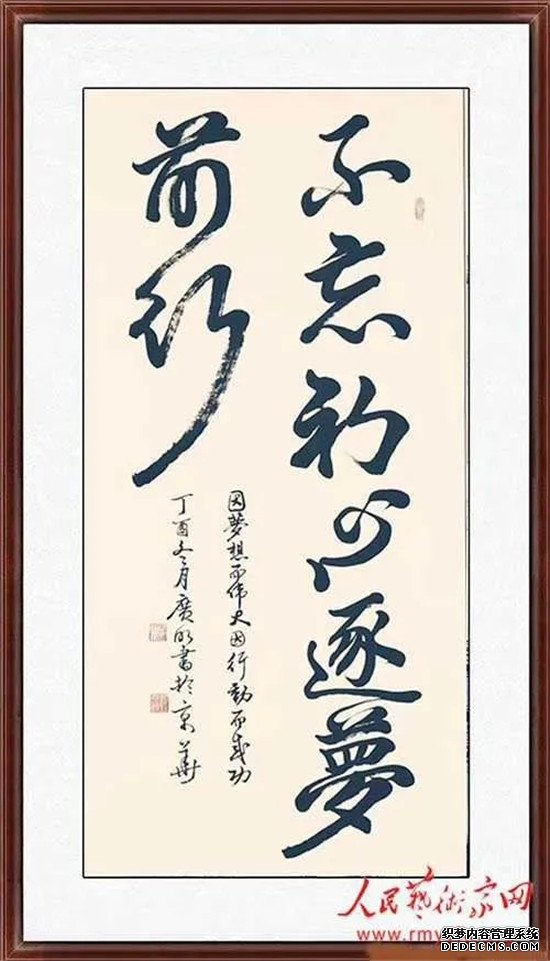 不忘初心逐夢
前行
因夢想而偉大因行動而成功
丁酉冬月廣明書於京華
人民藝術家网
www.rmy
织梦内容管理系统
DEDECMS.COM